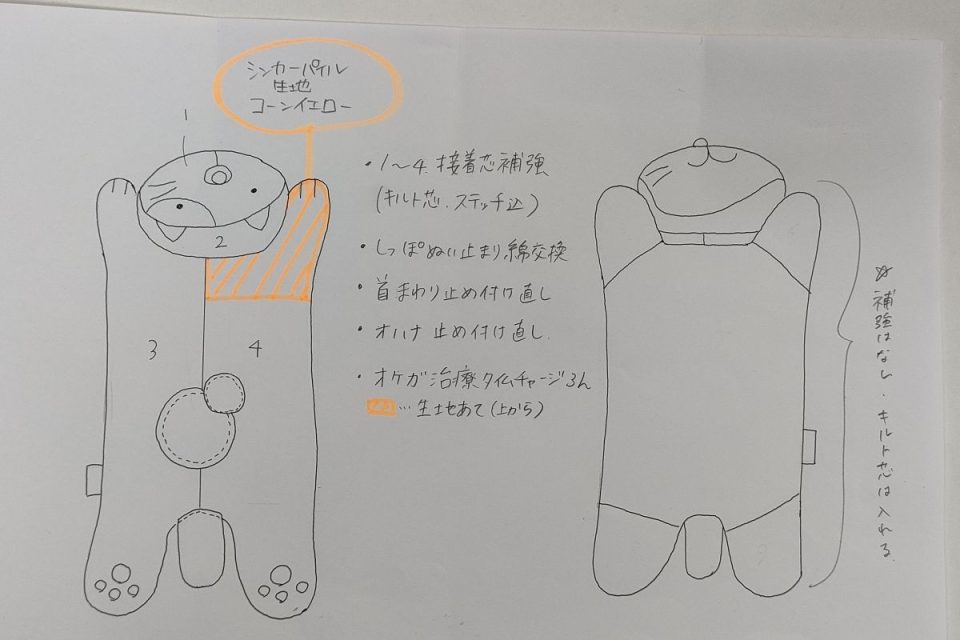 シンカーパイル
生地
コーンイエロー
1
2
3
4
・1〜4. 接着芯補強
(キルト芯. ステッチ込)
・しっぽぬい止まり,綿交換
・首まわり止め付け直し
・オハナ 止め付け直し.
・オケガ治療タイムチャージ3h
…生地あて(上から)
☆補強はなし・キルト芯は入れる